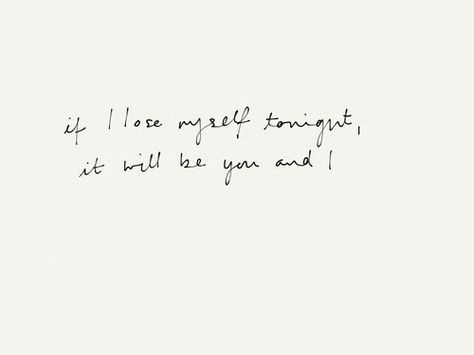 if I lose myself tonight,
it will be you and I